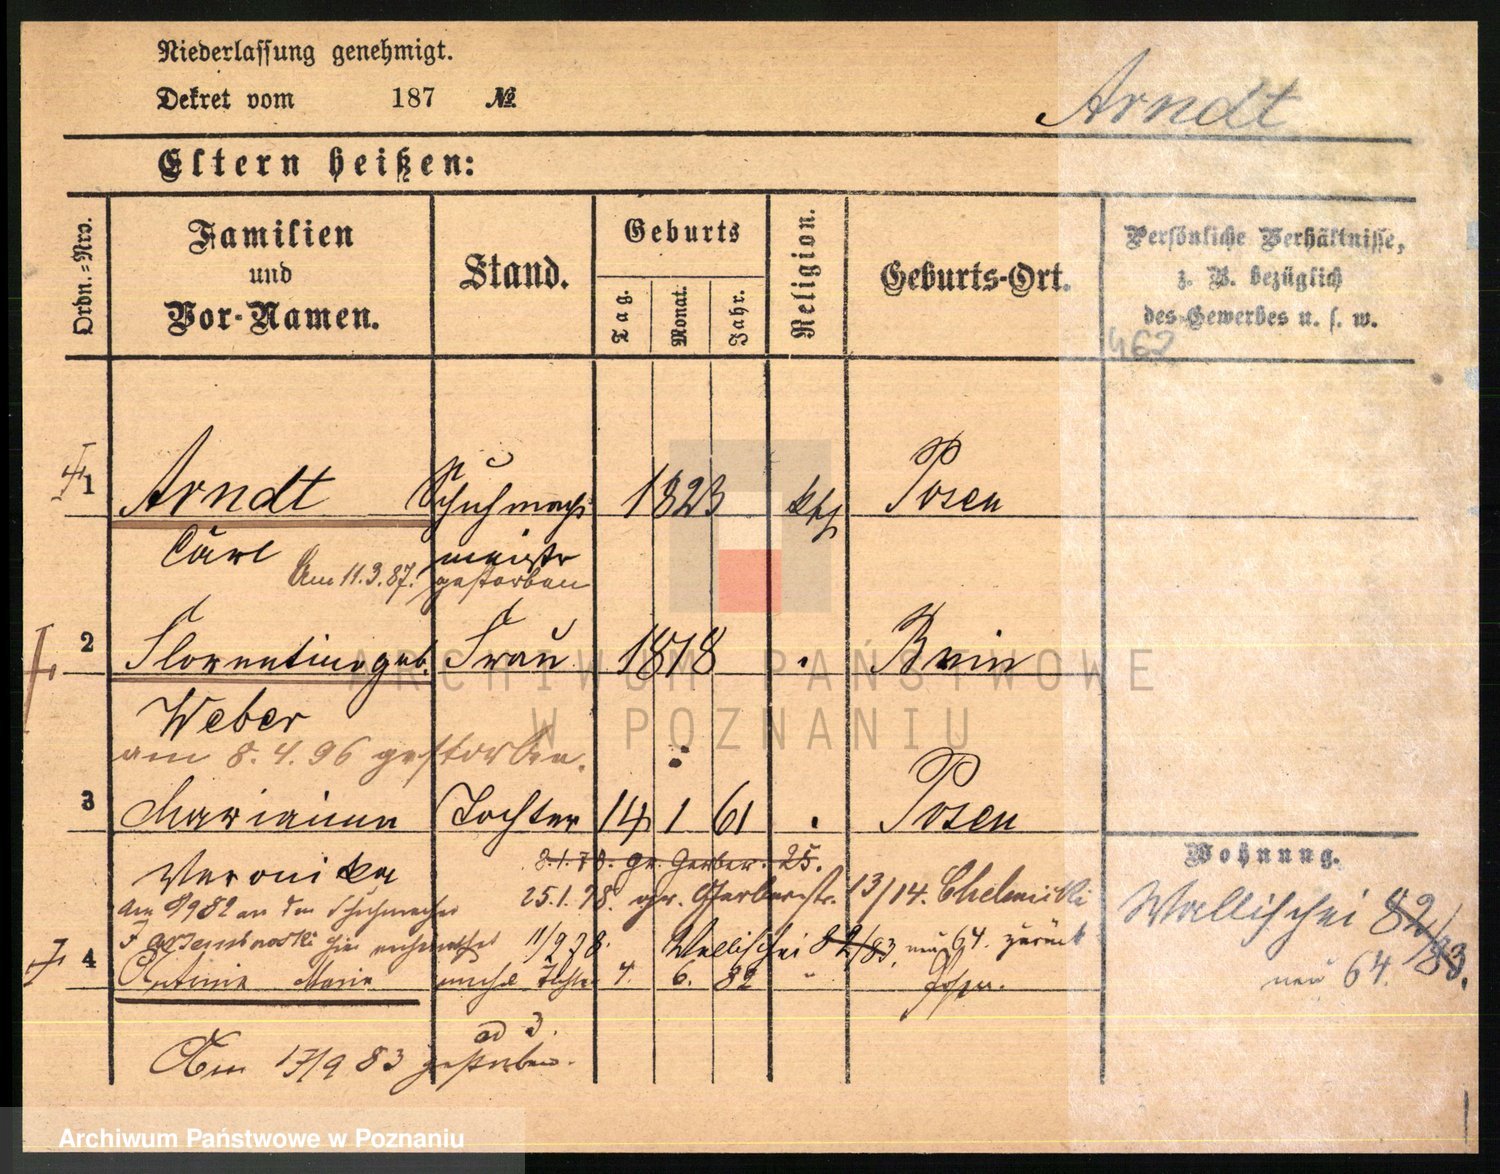 Niederlassung genehmigt.
Dekret vom 187 №
Arndt
Eltern heißen:
Ordn.=Nro.
Familien
und
Vor-Namen.
Stand.
Geburts
Tag.
Monat.
Jahr.
Religion.
Geburts-Ort.
Persönliche Verhältnisse,
z. B. bezüglich
des Gewerbes u. s. w.
462
1 Arndt Schuhmach 1823 kth Posen
Carl meistr
Am 11.3.87. gestorben
2 Florentine geb. Frau 1818 Brin
Weber
am 8.4.96 gestorben.
3 Marianna Tochter 14 1 61 Posen
8.1.78. gr. Gerber. 25.
Wohnung.
Veronika
25.1.78. gr. Gerberstr. 13/14.
Wallischei 82/83.
neu 64.
Am 8/9 82 an den Schuhmacher
hier verheirathet
11/9 78. Wallischei 82/83, neu 64. zurück
4 Antonie Marie unehl Tochter 4. 6. 82 " Posen.
ad 3.
Am 17/9 83 gestorben.
ARCHIWUM PAŃSTWOWE
W POZNANIU
Archiwum Państwowe w Poznaniu